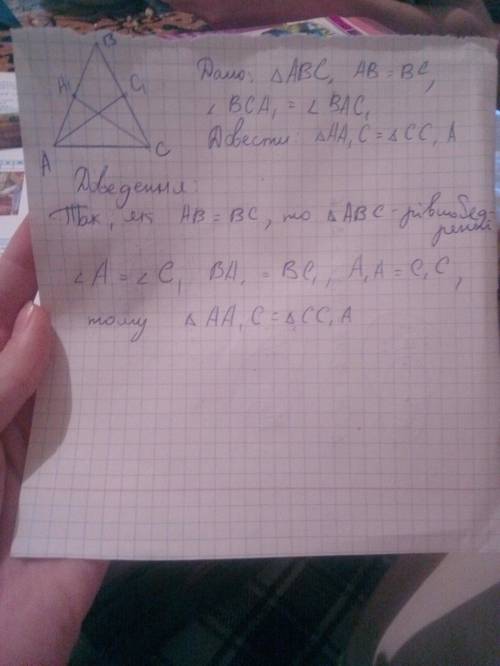 B
A₁ C₁
A C
Дано: △ABC, AB = BC,
∠BCA₁ = ∠BAC₁
Довести: △AA₁C = △CC₁A
Доведення:
Так, як AB = BC, то △ABC - рівнобед
рений
∠A = ∠C, BA₁ = BC₁, A₁A = C₁C,
тому △AA₁C = △CC₁A